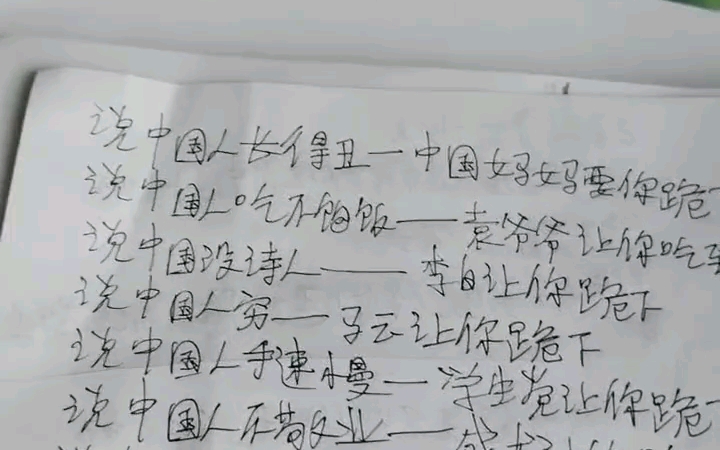 说中国人长得丑一中国妈妈要你跪
说中国人吃不饱饭——袁爷爷让你吃
说中国没诗人——李白让你跪下
说中国人穷——马云让你跪下
说中国人手速慢—学生党让你跪
说中国人不敬业——成龙